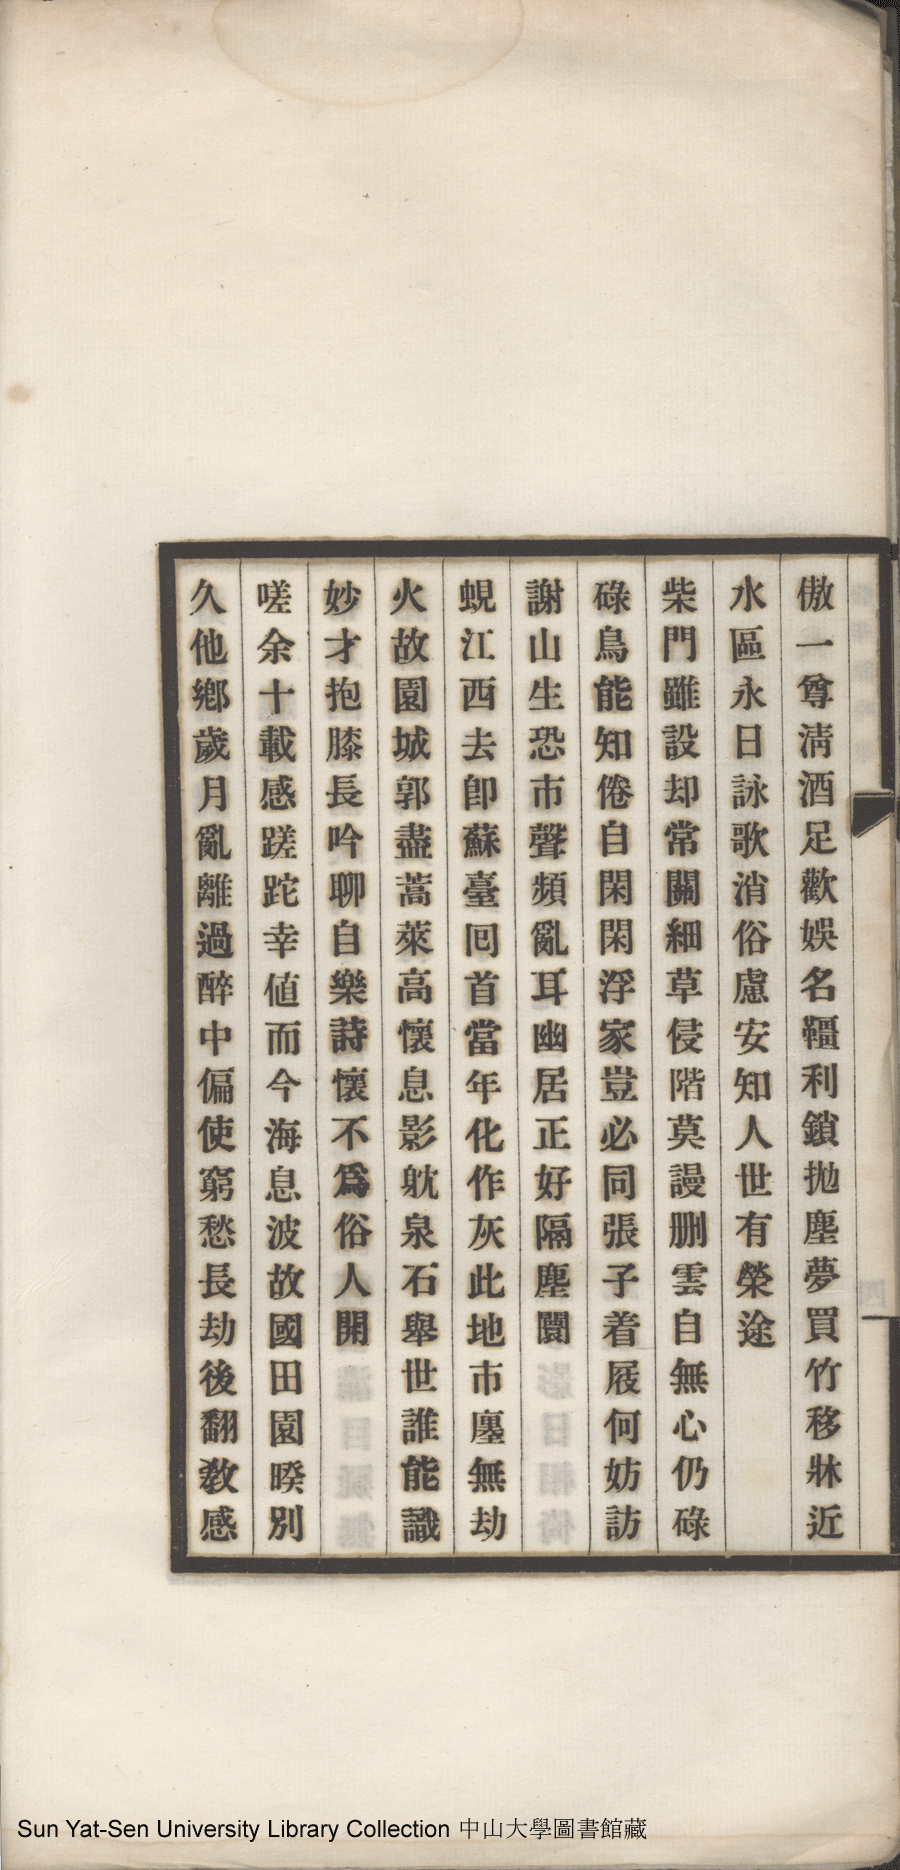 傲一尊淸酒足歡娛名韁利鎖抛塵夢買竹移牀近
水區永日詠歌消俗慮安知人世有榮途
柴門雖設却常關細草侵階莫謾删雲自無心仍碌
碌鳥能知倦自閑閑浮家豈必同張子着屐何妨訪
謝山生恐市聲頻亂耳幽居正好隔塵闤
蜆江西去卽蘇臺囘首當年化作灰此地市廛無劫
火故園城郭盡蒿萊高懷息影躭泉石舉世誰能識
妙才抱膝長吟聊自樂詩懷不爲俗人開
嗟余十載感蹉跎幸値而今海息波故國田園暌別
久他鄕歲月亂離過醉中偏使窮愁長劫後翻敎感
Sun Yat-Sen University Library Collection 中山大學圖書館藏